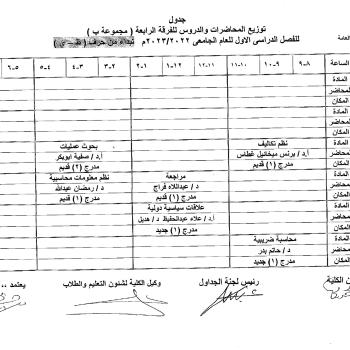 جدول
توزيع المحاضرات والدروس للفرقة الرابعة ( مجموعة ب )
للفصل الدراسى الاول للعام الجامعى ٢٠٢٣/٢٠٢٢م تبداء من حرف
العامة
الساعة ٨-٩ ٩-١٠ ١٠-١١ ١١-١٢ ١٢-١ ١-٢ ٢-٣ ٣-٤ ٤-٥ ٥-٦
المادة
المحاضر
المكان
المادة
المحاضر
المكان
المادة نظم تكاليف بحوث عمليات
المحاضر أ.د/ برنس ميخائيل غطاس أ.د/ صفية ابوبكر
المكان مدرج (١) قديم مدرج (٢) قديم
المادة مراجعة نظم معلومات محاسبية
المحاضر د / عبداللاه فراج د / رمضان عبدالله
المكان مدرج (١) قديم مدرج (١) قديم
المادة علاقات سياسية دولية
المحاضر أ.د/ علاء عبدالحفيظ د / هديل
المكان مدرج (١) جديد
المادة محاسبة ضريبية
المحاضر د / حاتم بدر
المكان مدرج (١) جديد
ن الكلية رئيس لجنة الجداول وكيل الكلية لشئون التعليم والطلاب يعتمد ..